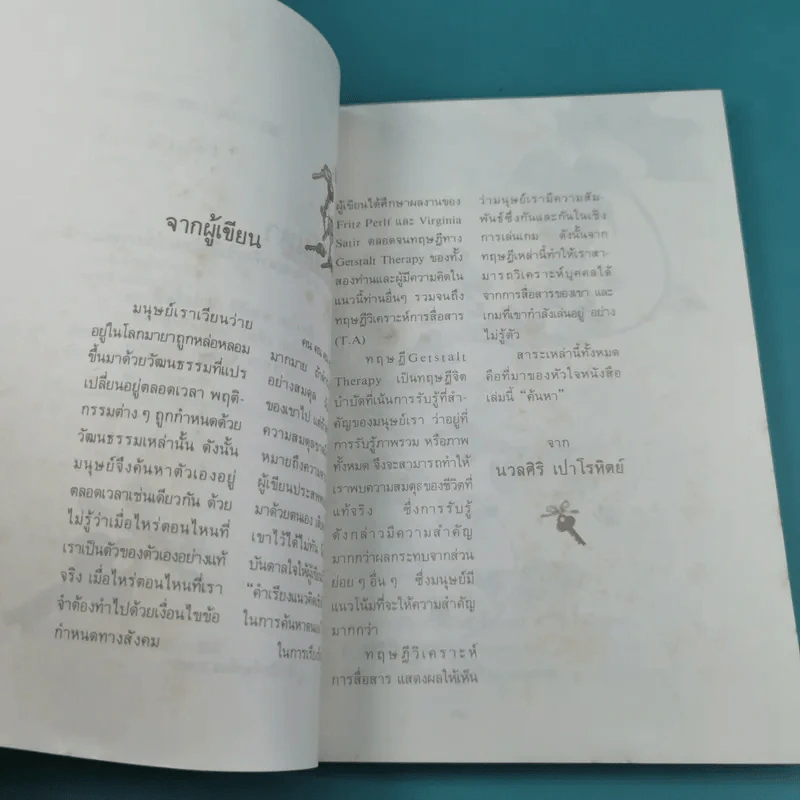 จากผู้เขียน
มนุษย์เราเวียนว่าย
อยู่ในโลกมายาถูกหล่อหลอม
ขึ้นมาด้วยวัฒนธรรมที่แปร
เปลี่ยนอยู่ตลอดเวลา พฤติ-
กรรมต่าง ๆ ถูกกำหนดด้วย
วัฒนธรรมเหล่านั้น ดังนั้น
มนุษย์จึงค้นหาตัวเองอยู่
ตลอดเวลาเช่นเดียวกัน ด้วย
ไม่รู้ว่าเมื่อไหร่ตอนไหนที่
เราเป็นตัวของตัวเองอย่างแท้
จริง เมื่อไหร่ตอนไหนที่เรา
จำต้องทำไปด้วยเงื่อนไขข้อ
กำหนดทางสังคม
มากมาย
อย่างสมดุล
ของเขาไป
ความสมดุล
หมายถึงความ
ผู้เขียนประสพ
มาด้วยตนเอง
เขาไว้ได้ไม่ทัน
บันดาลใจให้ผู้เขียน
"คำเรียงแนวคิด
ในการค้นหาตนเอง
ในการเรียง
ผู้เขียนได้ศึกษาผลงานของ
Fritz Perlf และ Virginia
Satir ตลอดจนทฤษฎีทาง
Getstalt Therapy ของทั้ง
สองท่านและผู้มีความคิดใน
แนวนี้ท่านอื่นๆ รวมจนถึง
ทฤษฎีวิเคราะห์การสื่อสาร
(T.A)
ทฤษฎีGetstalt
Therapy เป็นทฤษฎีจิต
บำบัดที่เน้นการรับรู้ที่สำ-
คัญของมนุษย์เรา ว่าอยู่ที่
การรับรู้ภาพรวม หรือภาพ
ทั้งหมด จึงจะสามารถทำให้
เราพบความสมดุลของชีวิตที่
แท้จริง ซึ่งการรับรู้
ดังกล่าวมีความสำคัญ
มากกว่าผลกระทบจากส่วน
ย่อย ๆ อื่น ๆ ซึ่งมนุษย์มี
แนวโน้มที่จะให้ความสำคัญ
มากกว่า
ทฤษฎีวิเคราะห์
การสื่อสาร แสดงผลให้เห็น
ว่ามนุษย์เรามีความสัม-
พันธ์ซึ่งกันและกันในเชิง
การเล่นเกม ดังนั้นจาก
ทฤษฎีเหล่านี้ทำให้เราสา-
มารถวิเคราะห์บุคคลได้
จากการสื่อสารของเขา และ
เกมที่เขากำลังเล่นอยู่ อย่าง
ไม่รู้ตัว
สาระเหล่านี้ทั้งหมด
คือที่มาของหัวใจหนังสือ
เล่มนี้ "ค้นหา"
จาก
นวลศิริ เปาโรหิตย์